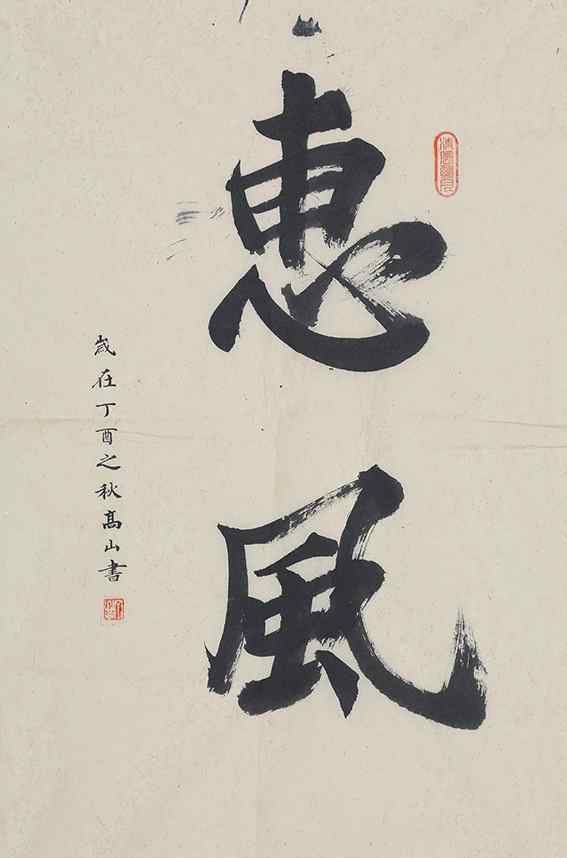 惠風
歲在丁酉之秋高山書